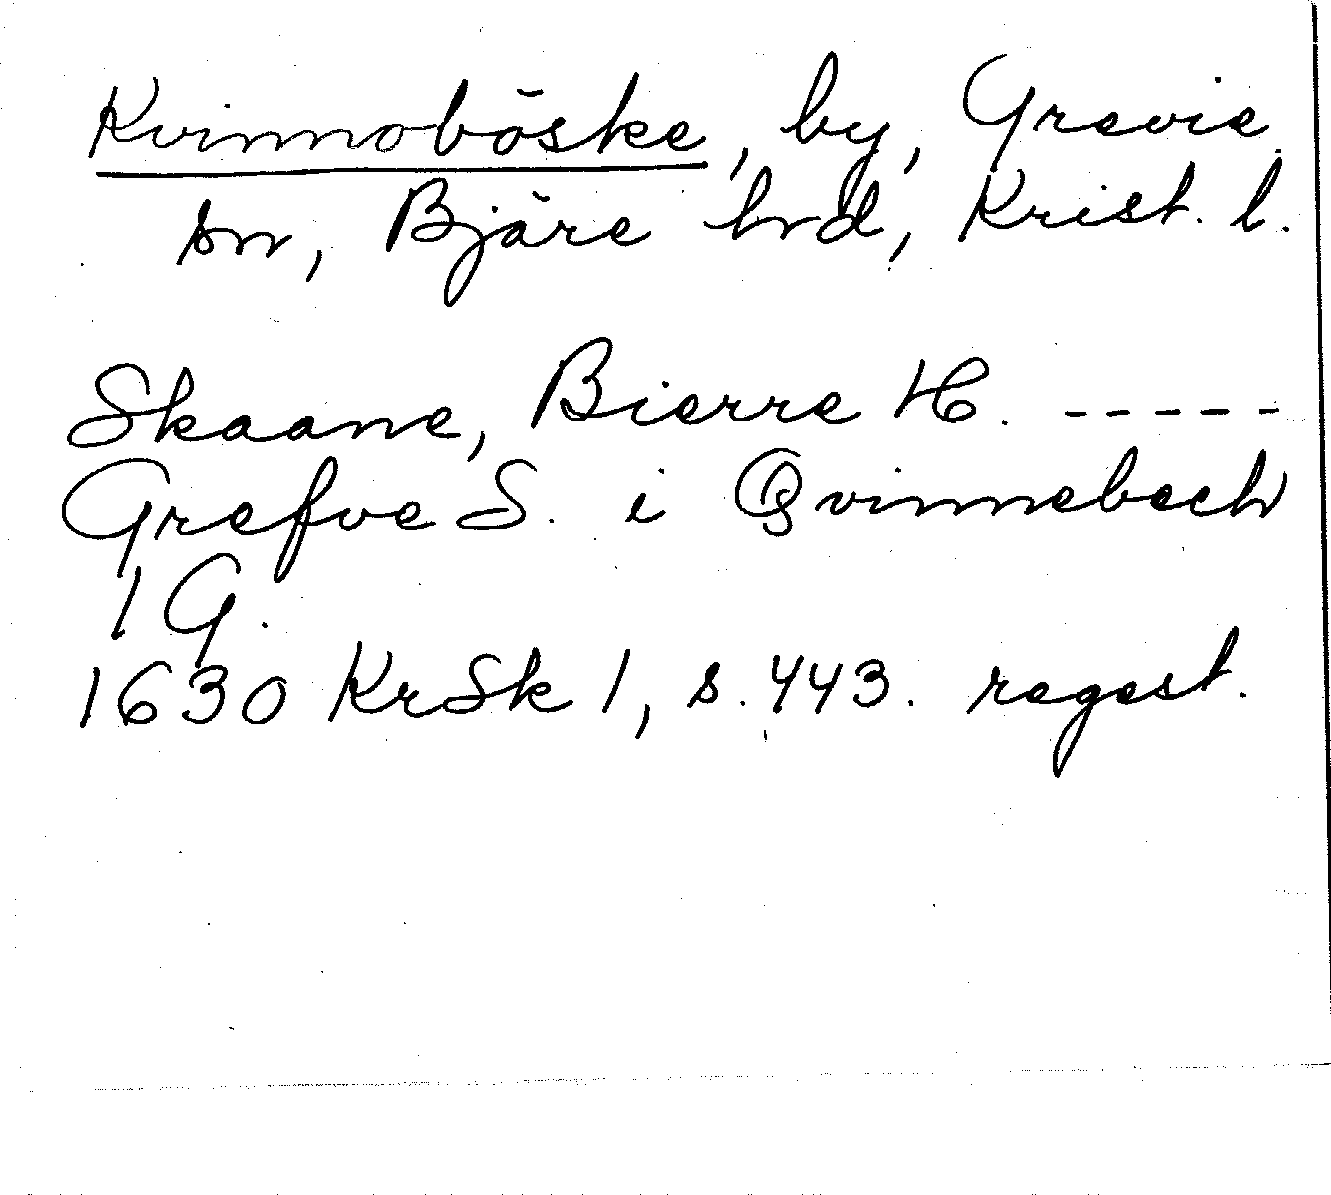 Kvinnoböske, by, Grevie
sn, Bjäre hrd, Krist. l.
Skaane, Bierre H. -----
Grefve S. i Qvinnebech
1 G.
1630 KrSk 1, s. 443. regest.